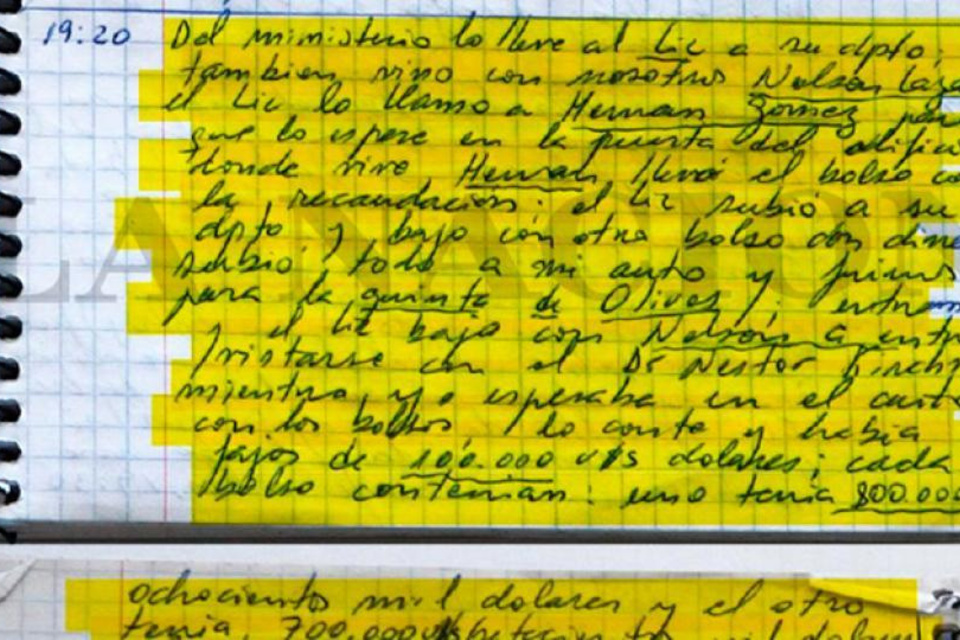 19:20 Del ministerio lo lleve al Lic a su dpto;
tambien vino con nosotros Nelson Laza
el Lic lo llamo a Hernan Gomez para
que lo espere en la puerta del edificio
donde vive, Hernan llevó el bolso co
la recaudación; el Lic subio a su
dpto, y bajo con otro bolso con dine
subio todo a mi auto y fuimos
para la quinta de Olivos; entra
y el Lic bajo con Nelson a entre
/ristarse con el Dr Nestor Kirch
mientra, yo esperaba en el auto
con los bolsos, lo conte y habia
fajos de 100.000 u$s dolares; cada
bolso contenian: uno tenia 800.000
LA NACION
ochocientos mil dolares y el otro
tenia, 700.000